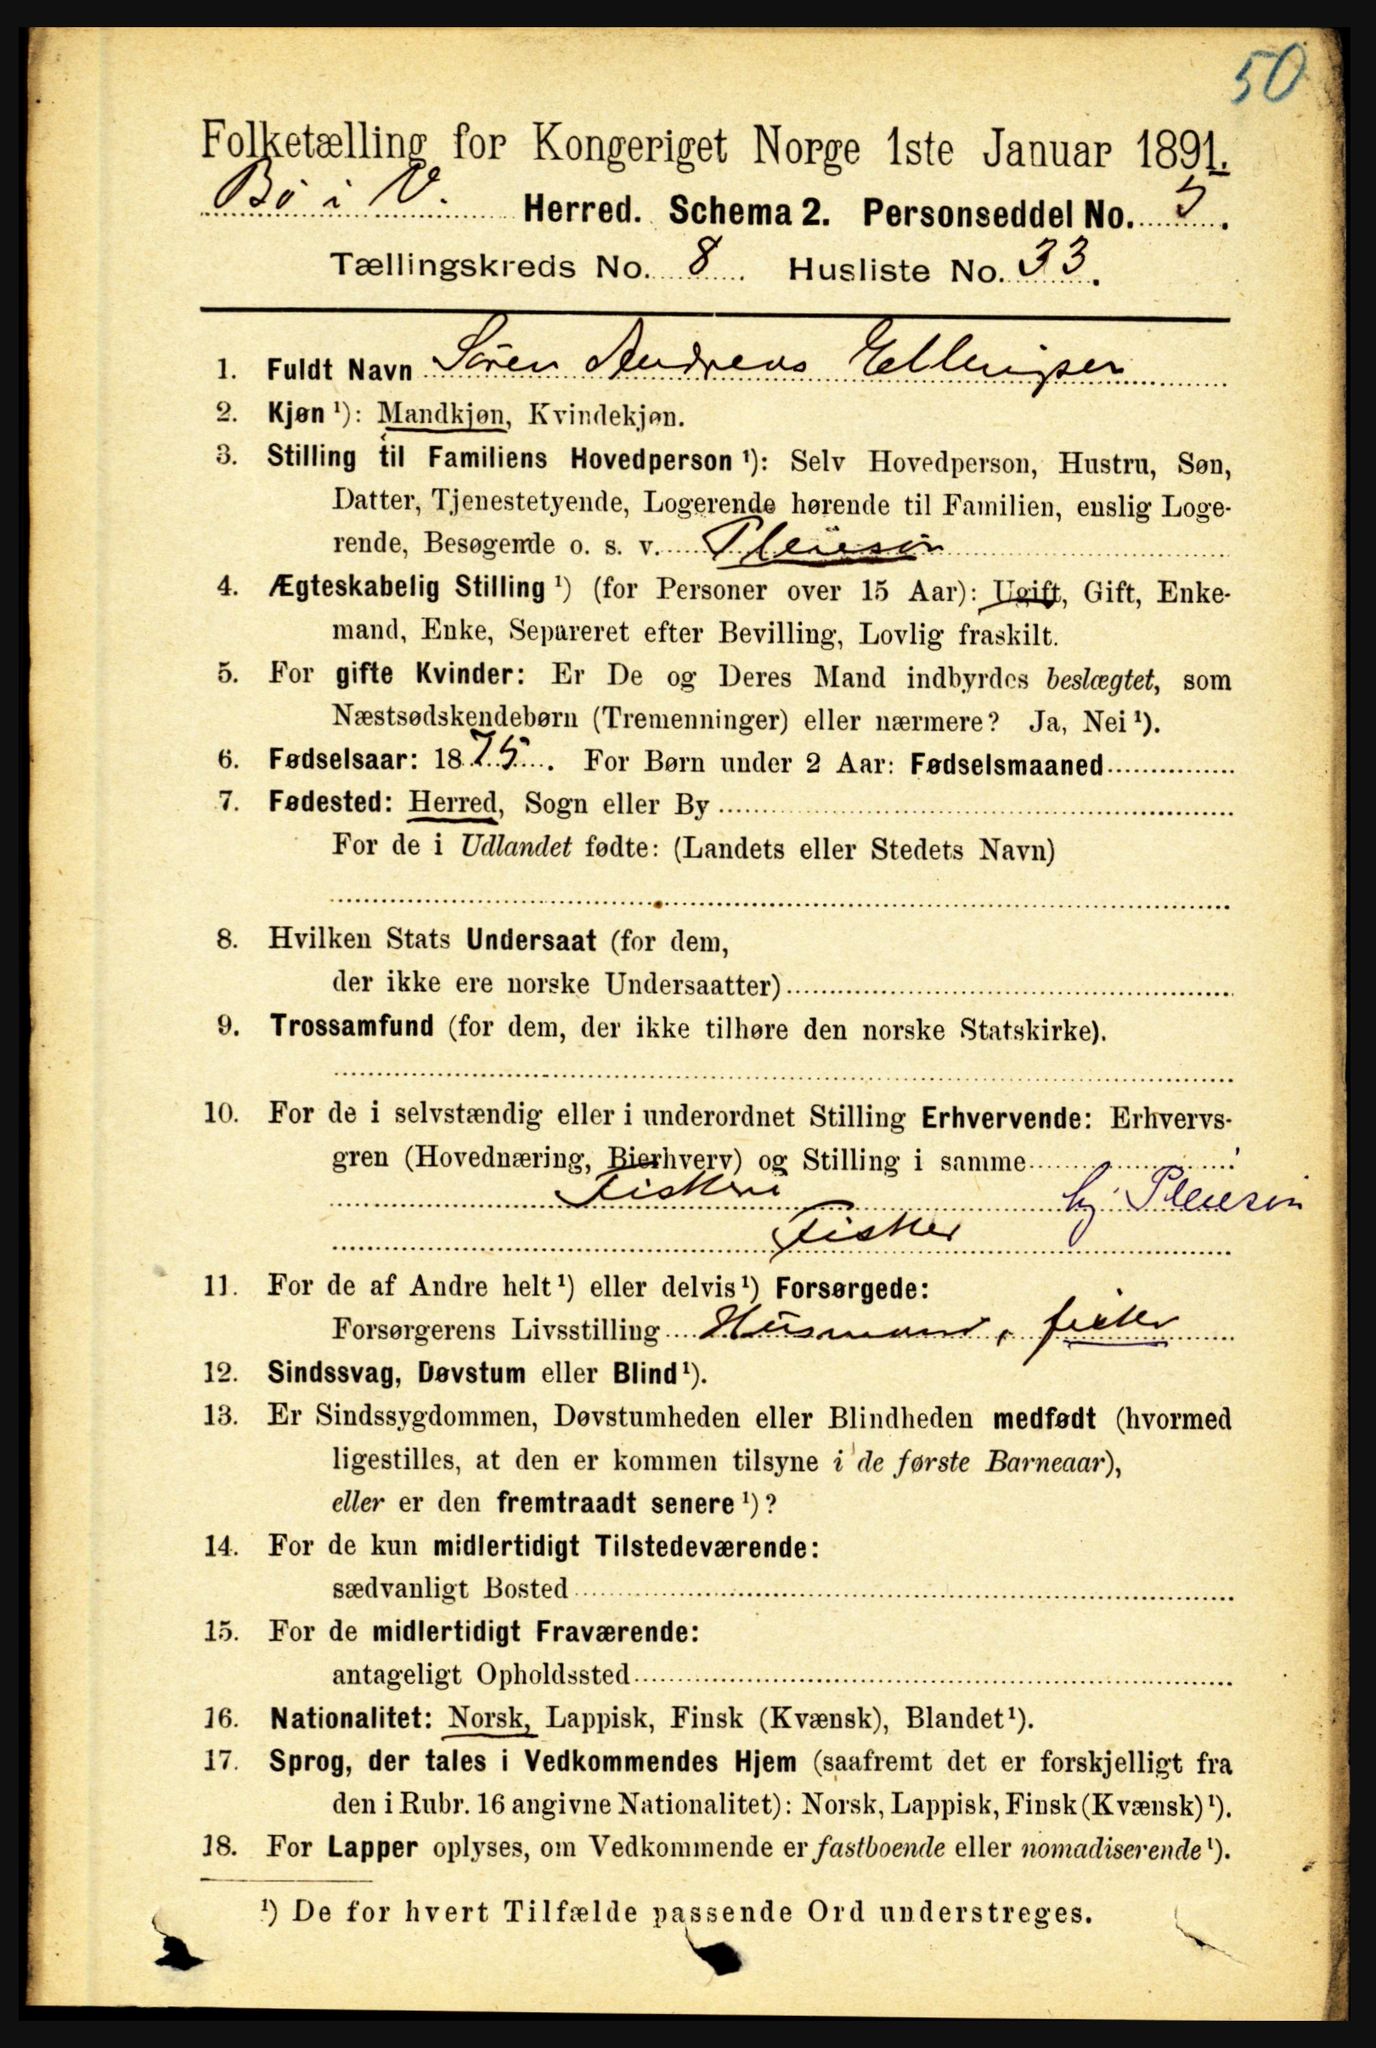 50
Folketælling for Kongeriget Norge 1ste Januar 1891.
Bö i V. Herred. Schema 2. Personseddel No. 5.
Tællingskreds No. 8 Husliste No. 33.
1. Fuldt Navn Sören Andreas Ellingsen
2. Kjøn ¹): Mandkjøn, Kvindekjøn.
3. Stilling til Familiens Hovedperson ¹): Selv Hovedperson, Hustru, Søn,
Datter, Tjenestetyende, Logerende hørende til Familien, enslig Loge-
rende, Besøgende o. s. v. Pleiesön
4. Ægteskabelig Stilling ¹) (for Personer over 15 Aar): Ugift, Gift, Enke-
mand, Enke, Separeret efter Bevilling, Lovlig fraskilt.
5. For gifte Kvinder: Er De og Deres Mand indbyrdes beslægtet, som
Næstsødskendebørn (Tremenninger) eller nærmere? Ja, Nei ¹).
6. Fødselsaar: 1875. For Børn under 2 Aar: Fødselsmaaned
7. Fødested: Herred, Sogn eller By
For de i Udlandet fødte: (Landets eller Stedets Navn)
8. Hvilken Stats Undersaat (for dem,
der ikke ere norske Undersaatter)
9. Trossamfund (for dem, der ikke tilhøre den norske Statskirke).
10. For de i selvstændig eller i underordnet Stilling Erhvervende: Erhvervs-
gren (Hovednæring, Bierhverv) og Stilling i samme
Fiskeri hj. Pleiesön
Fisker
11. For de af Andre helt ¹) eller delvis ¹) Forsørgede:
Forsørgerens Livsstilling Husmand, fisker
12. Sindssvag, Døvstum eller Blind ¹).
13. Er Sindssygdommen, Døvstumheden eller Blindheden medfødt (hvormed
ligestilles, at den er kommen tilsyne i de første Barneaar),
eller er den fremtraadt senere ¹)?
14. For de kun midlertidigt Tilstedeværende:
sædvanligt Bosted
15. For de midlertidigt Fraværende:
antageligt Opholdssted
16. Nationalitet: Norsk, Lappisk, Finsk (Kvænsk), Blandet ¹).
17. Sprog, der tales i Vedkommendes Hjem (saafremt det er forskjelligt fra
den i Rubr. 16 angivne Nationalitet): Norsk, Lappisk, Finsk (Kvænsk) ¹).
18. For Lapper oplyses, om Vedkommende er fastboende eller nomadiserende ¹).
¹) De for hvert Tilfælde passende Ord understreges.